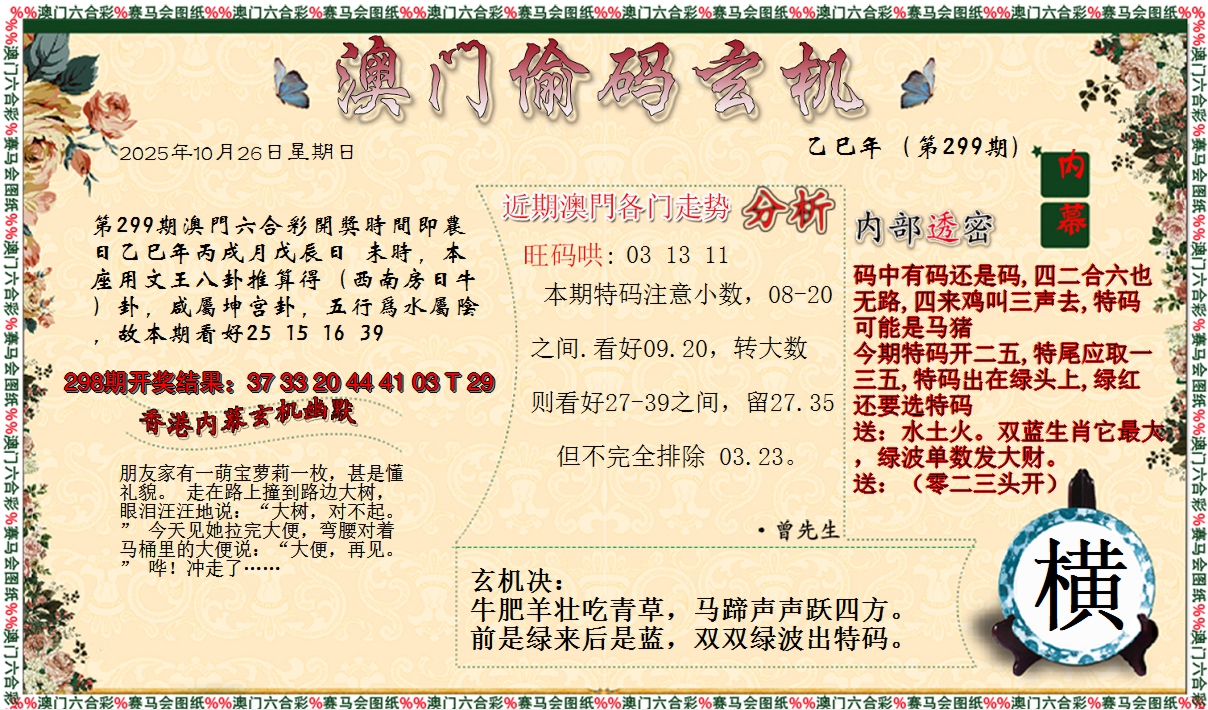 %%澳门六合彩%赛马会图纸%%澳门六合彩%赛马会图纸%%澳门六合彩%赛马会图纸%%澳门六合彩%赛马会图纸%%澳门六合彩%赛马会图纸%%澳门六合彩%赛马会图纸%%
澳门偷码玄机
2025年10月26日星期日
乙巳年（第299期）
内幕
第299期澳門六合彩開獎時間即農
日乙巳年丙戌月戊辰日 未時，本
座用文王八卦推算得（西南房日牛
）卦，咸屬坤宫卦，五行爲水屬陰
，故本期看好25 15 16 39
298期开奖结果：37 33 20 44 41 03 T 29
香港内幕玄机幽默
朋友家有一萌宝萝莉一枚，甚是懂
礼貌。 走在路上撞到路边大树，
眼泪汪汪地说：“大树，对不起。
” 今天见她拉完大便，弯腰对着
马桶里的大便说：“大便，再见。
” 哗！冲走了……
近期澳門各门走势 分析
旺码哄: 03 13 11
本期特码注意小数，08-20
之间.看好09.20，转大数
则看好27-39之间，留27.35
但不完全排除 03.23。
·曾先生
内部透密
码中有码还是码,四二合六也
无路,四来鸡叫三声去,特码
可能是马猪
今期特码开二五,特尾应取一
三五,特码出在绿头上,绿红
还要选特码
送：水土火。双蓝生肖它最大
，绿波单数发大财。
送：（零二三头开）
玄机决：
牛肥羊壮吃青草，马蹄声声跃四方。
前是绿来后是蓝，双双绿波出特码。
横
%%澳门六合彩%赛马会图纸%%澳门六合彩%赛马会图纸%%澳门六合彩%赛马会图纸%%澳门六合彩%赛马会图纸%%澳门六合彩%赛马会图纸%%澳门六合彩%赛马会图纸%%